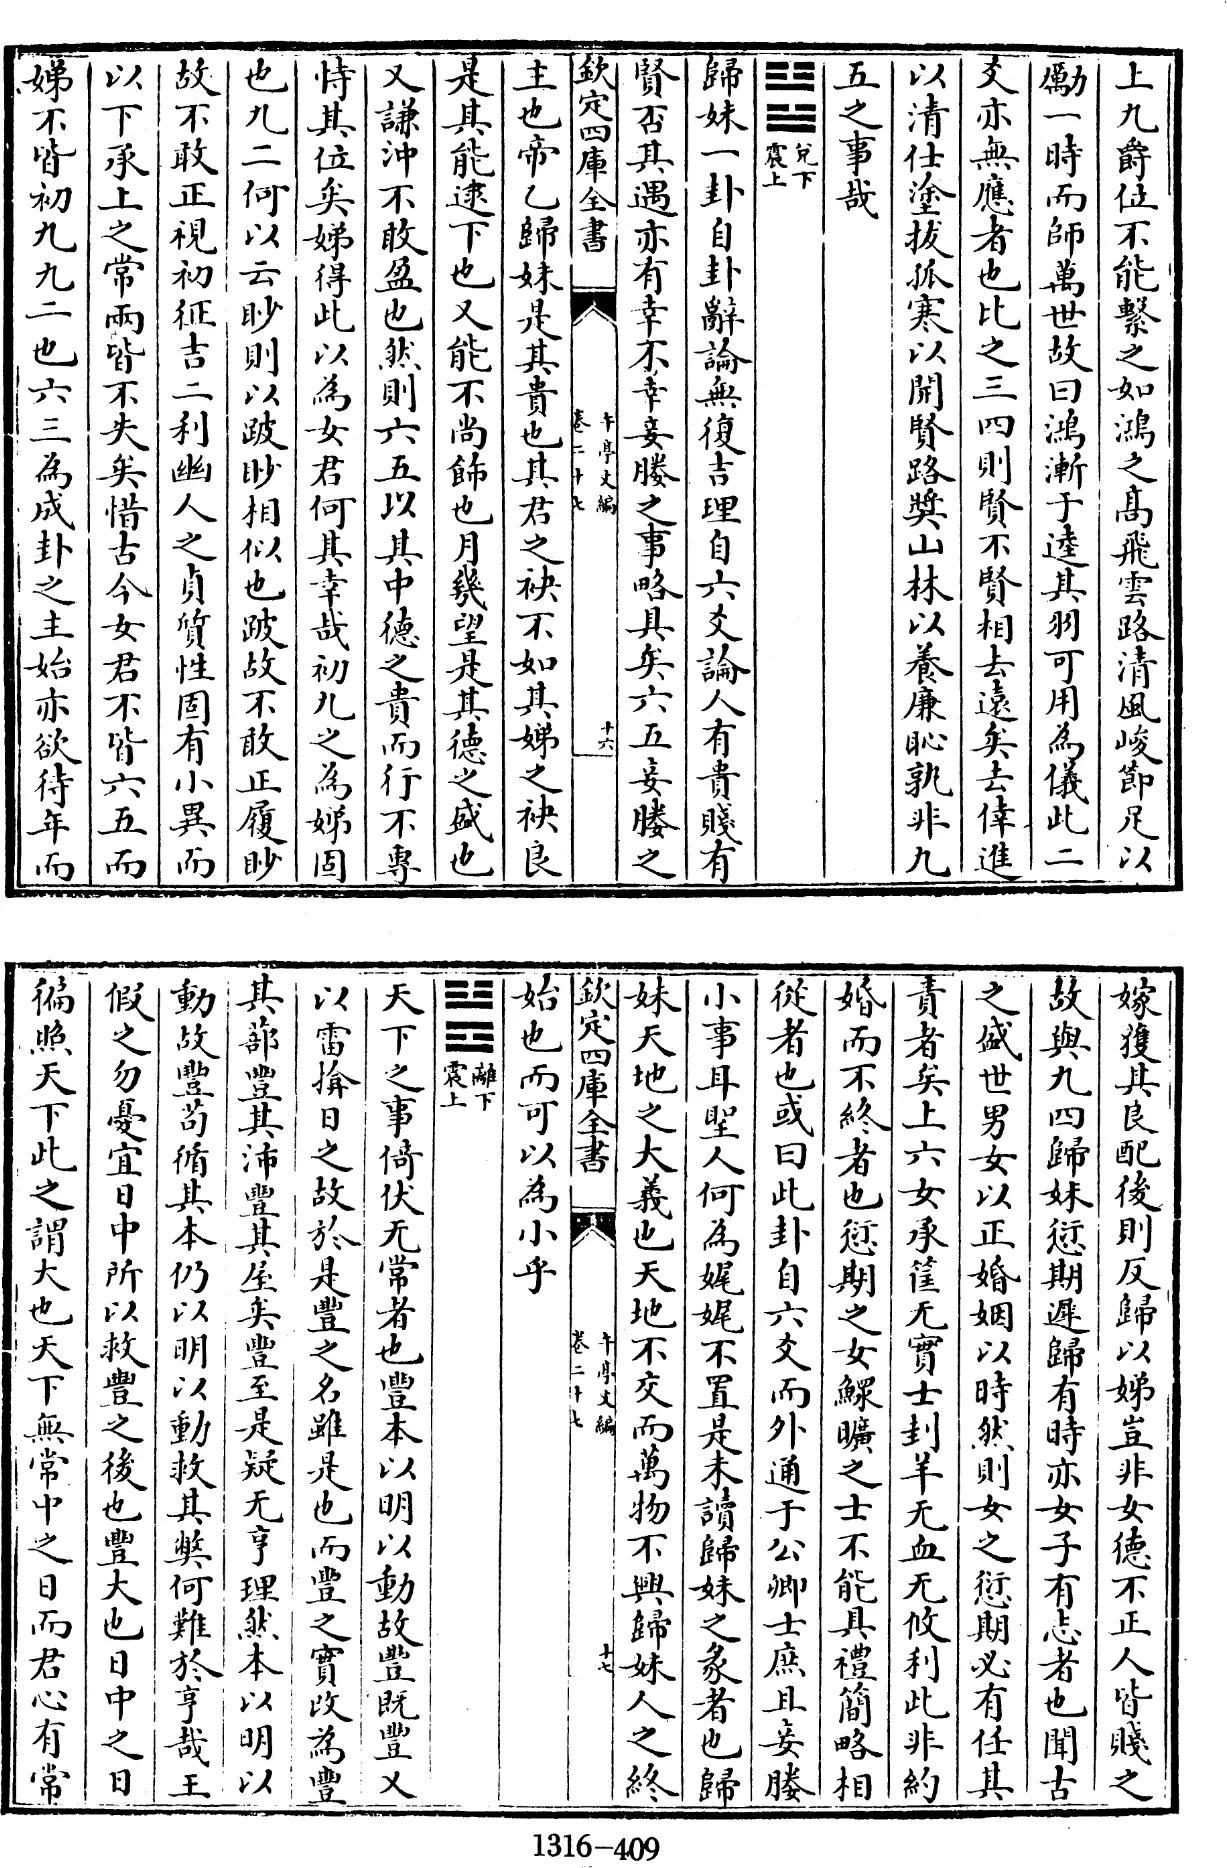 上九爵位不能繫之如鴻之高飛雲路清風峻節足以
勵一時而師萬世故曰鴻漸于逵其羽可用為儀此二
爻亦無應者也比之三四則賢不賢相去遠矣去倖進
以清仕塗拔孤寒以開賢路奬山林以養廉恥孰非九
五之事哉
兌下
震上
歸妹一卦自卦辭論無復吉理自六爻論人有貴賤有
賢否其遇亦有幸不幸妾媵之事略具矣六五妾媵之
欽定四庫全書
午亭文編
卷二十七
十六
主也帝乙歸妹是其貴也其君之袂不如其娣之袂良
是其能逮下也又能不尚飾也月幾望是其德之盛也
又謙沖不敢盈也然則六五以其中德之貴而行不專
恃其位矣娣得此以為女君何其幸哉初九之為娣固
也九二何以云眇則以跛眇相似也跛故不敢正履眇
故不敢正視初征吉二利幽人之貞質性固有小異而
以下承上之常兩皆不失矣惜古今女君不皆六五而
娣不皆初九九二也六三為成卦之主始亦欲待年而
嫁獲其良配後則反歸以娣豈非女德不正人皆賤之
故與九四歸妹愆期遲歸有時亦女子有志者也聞古
之盛世男女以正婚姻以時然則女之愆期必有任其
責者矣上六女承筐无實士刲羊无血无攸利此非約
婚而不終者也愆期之女鰥曠之士不能具禮簡略相
從者也或曰此卦自六爻而外通于公卿士庶且妾媵
小事耳聖人何為娓娓不置是未讀歸妹之彖者也歸
妹天地之大義也天地不交而萬物不興歸妹人之終
欽定四庫全書
午亭文編
卷二十七
十七
始也而可以為小乎
離下
震上
天下之事倚伏无常者也豐本以明以動故豐既豐又
以雷揜日之故於是豐之名雖是也而豐之實改為豐
其蔀豐其沛豐其屋矣豐至是疑无亨理然本以明以
動故豐苟循其本仍以明以動救其獘何難於亨哉王
假之勿憂宜日中所以救豐之後也豐大也日中之日
徧照天下此之謂大也天下無常中之日而君心有常
1316-409